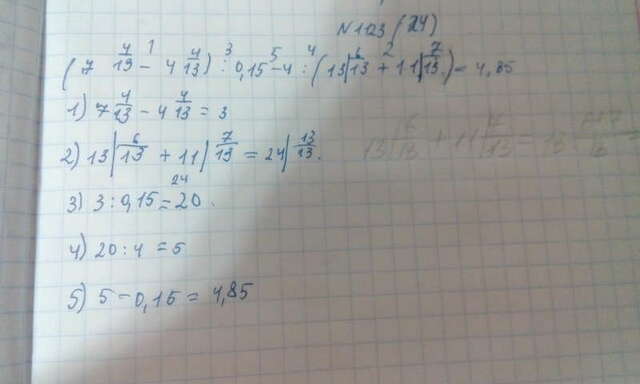 N 1123 (24)
(7 4/13 - 4 4/13) : 0,15 - 4 : (13 6/13 + 11 7/13) = 4,85
1) 7 4/13 - 4 4/13 = 3
2) 13 6/13 + 11 7/13 = 24 13/13.
24
3) 3 : 0,15 = 20.
4) 20 : 4 = 5
5) 5 - 0,15 = 4,85